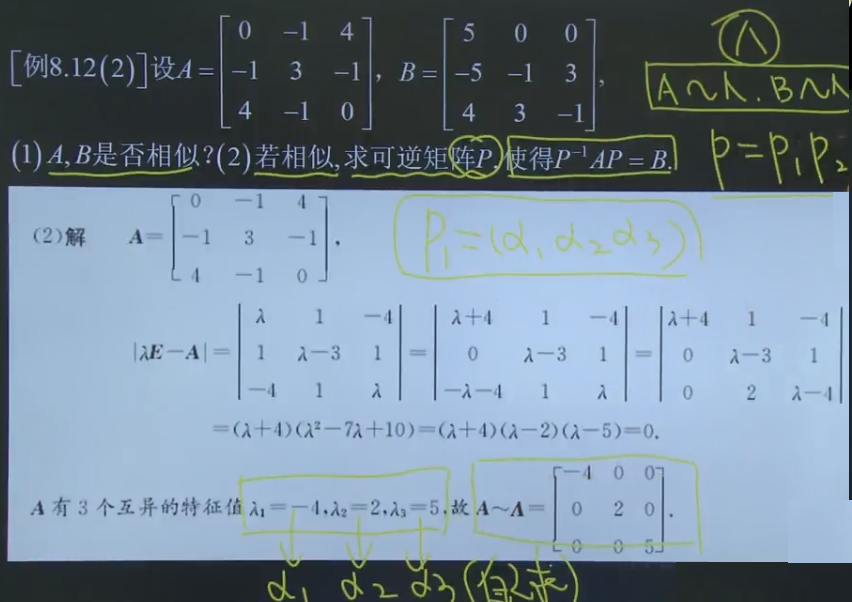 [例8.12(2)]设A=[0 −1 4; −1 3 −1; 4 −1 0], B=[5 0 0; −5 −1 3; 4 3 −1],
Λ
A~Λ. B~Λ
(1) A,B是否相似?(2)若相似,求可逆矩阵P.使得P⁻¹AP=B.
P=P₁P₂
(2)解 A=[0 −1 4; −1 3 −1; 4 −1 0],
P₁=(α₁ α₂ α₃)
|λE−A|=|λ 1 −4; 1 λ−3 1; −4 1 λ|=|λ+4 1 −4; 0 λ−3 1; −λ−4 1 λ|=|λ+4 1 −4; 0 λ−3 1; 0 2 λ−4|
=(λ+4)(λ²−7λ+10)=(λ+4)(λ−2)(λ−5)=0.
A有3个互异的特征值λ₁=−4,λ₂=2,λ₃=5,故A~Λ=[−4 0 0; 0 2 0; 0 0 5].
α₁ α₂ α₃(自己求)